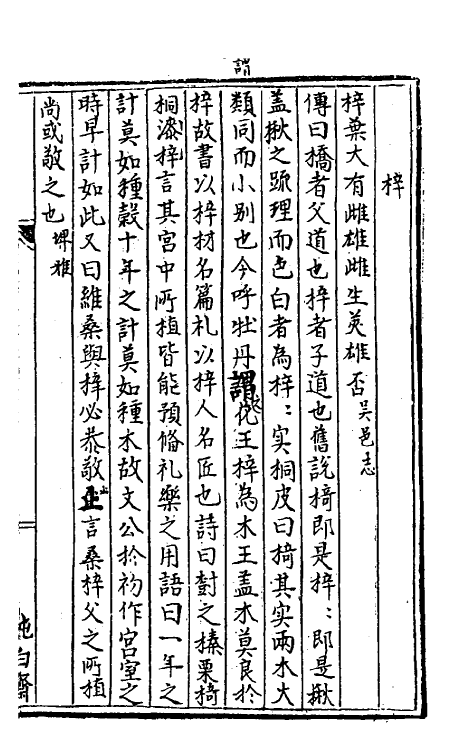 謂
梓
梓葉大有雌雄雌生莢雄否吳邑志
傳曰橋者父道也梓者子道也舊說椅即是梓〻即是楸
盖楸之踈理而色白者為梓〻实桐皮曰椅其实兩木大
類同而小别也今呼牡丹謂花王梓為木王盖木莫良於
梓故書以梓材名篇礼以梓人名匠也詩曰樹之榛栗椅
桐漆梓言其宮中所植皆能預俻礼樂之用語曰一年之
計莫如種榖十年之計莫如種木故文公於初作宮室之
時早計如此又曰維桑與梓必恭敬止言桑梓父之所植
尚或敬之也埤雅
純白齋